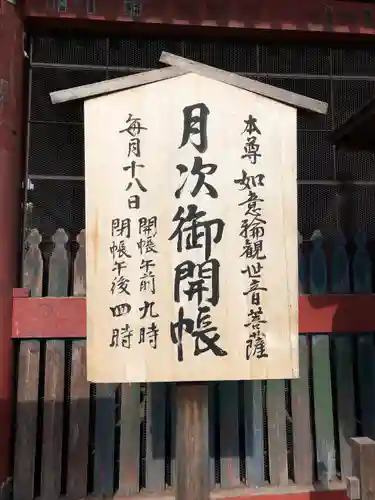 本尊 如意輪観世音菩薩
月次御開帳
毎月十八日
開帳午前九時
閉帳午後四時